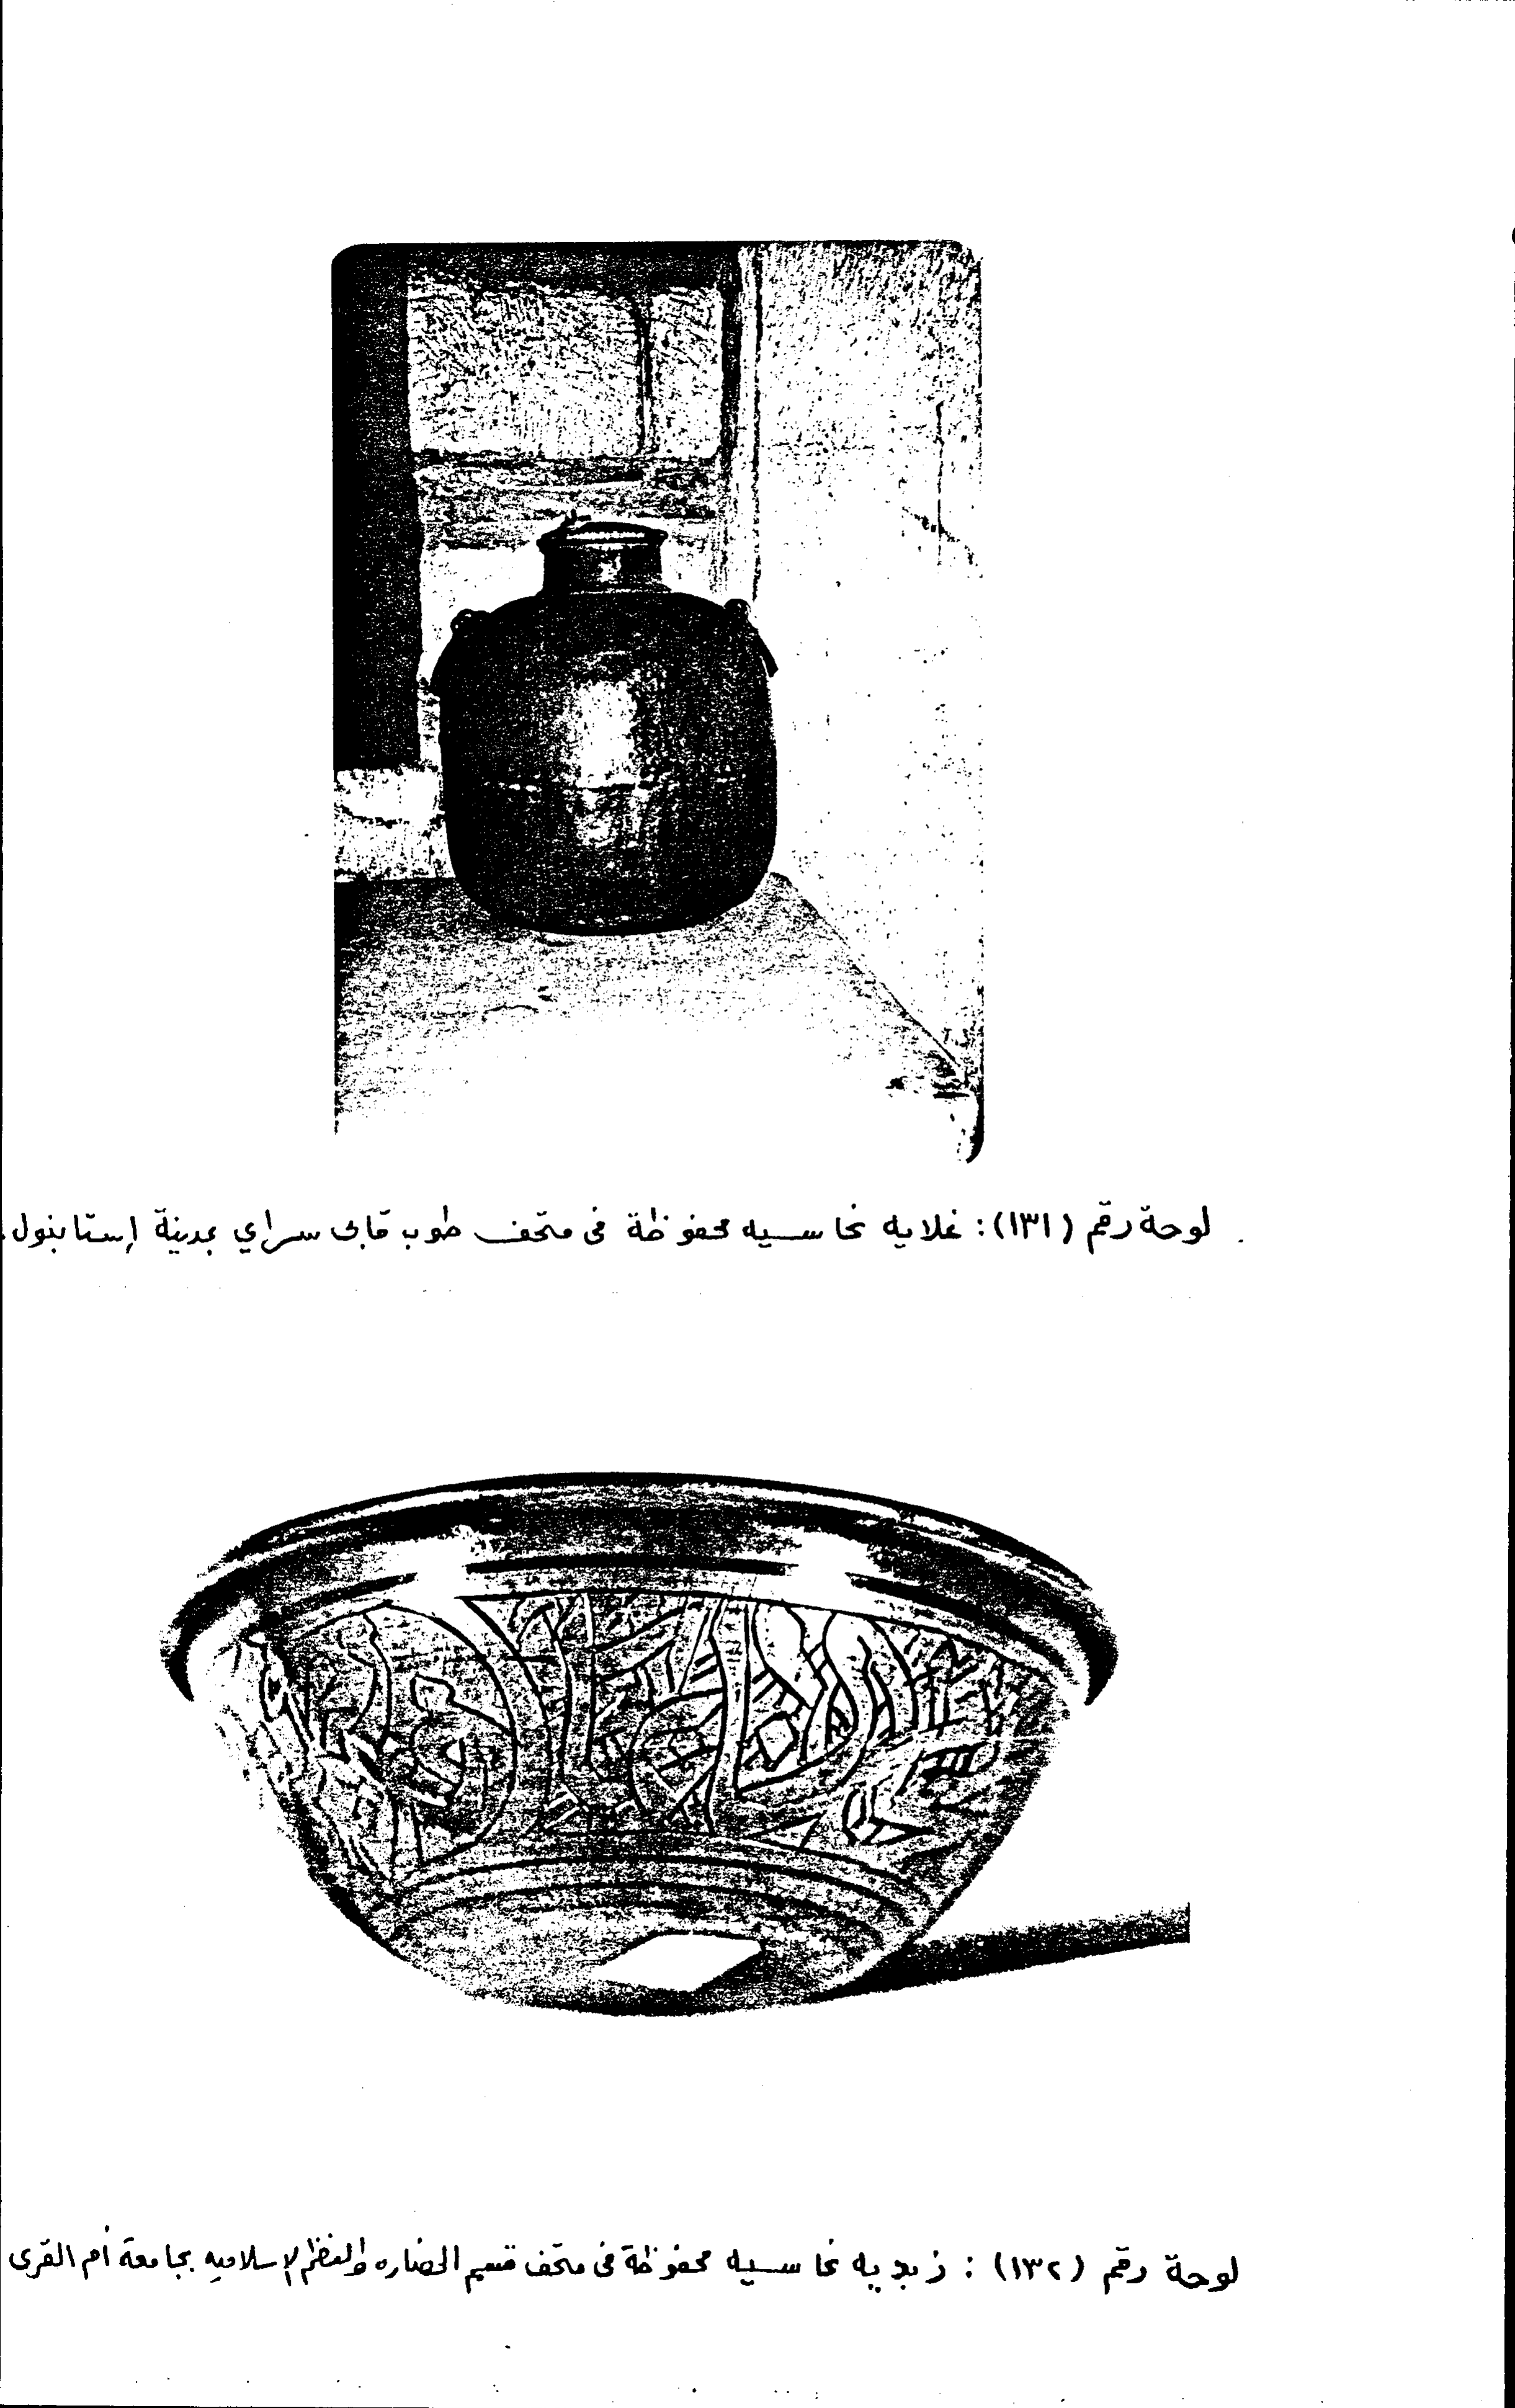 لوحة رقم (١٣١): غلايه نحاسيه محفوظة فى متحف طوب قابى سراي بمدينة إستابنول.
لوحة رقم (١٣٢): زبديه نحاسيه محفوظة فى متحف قسم الحضاره والنظم الإسلاميه بجامعة أم القرى